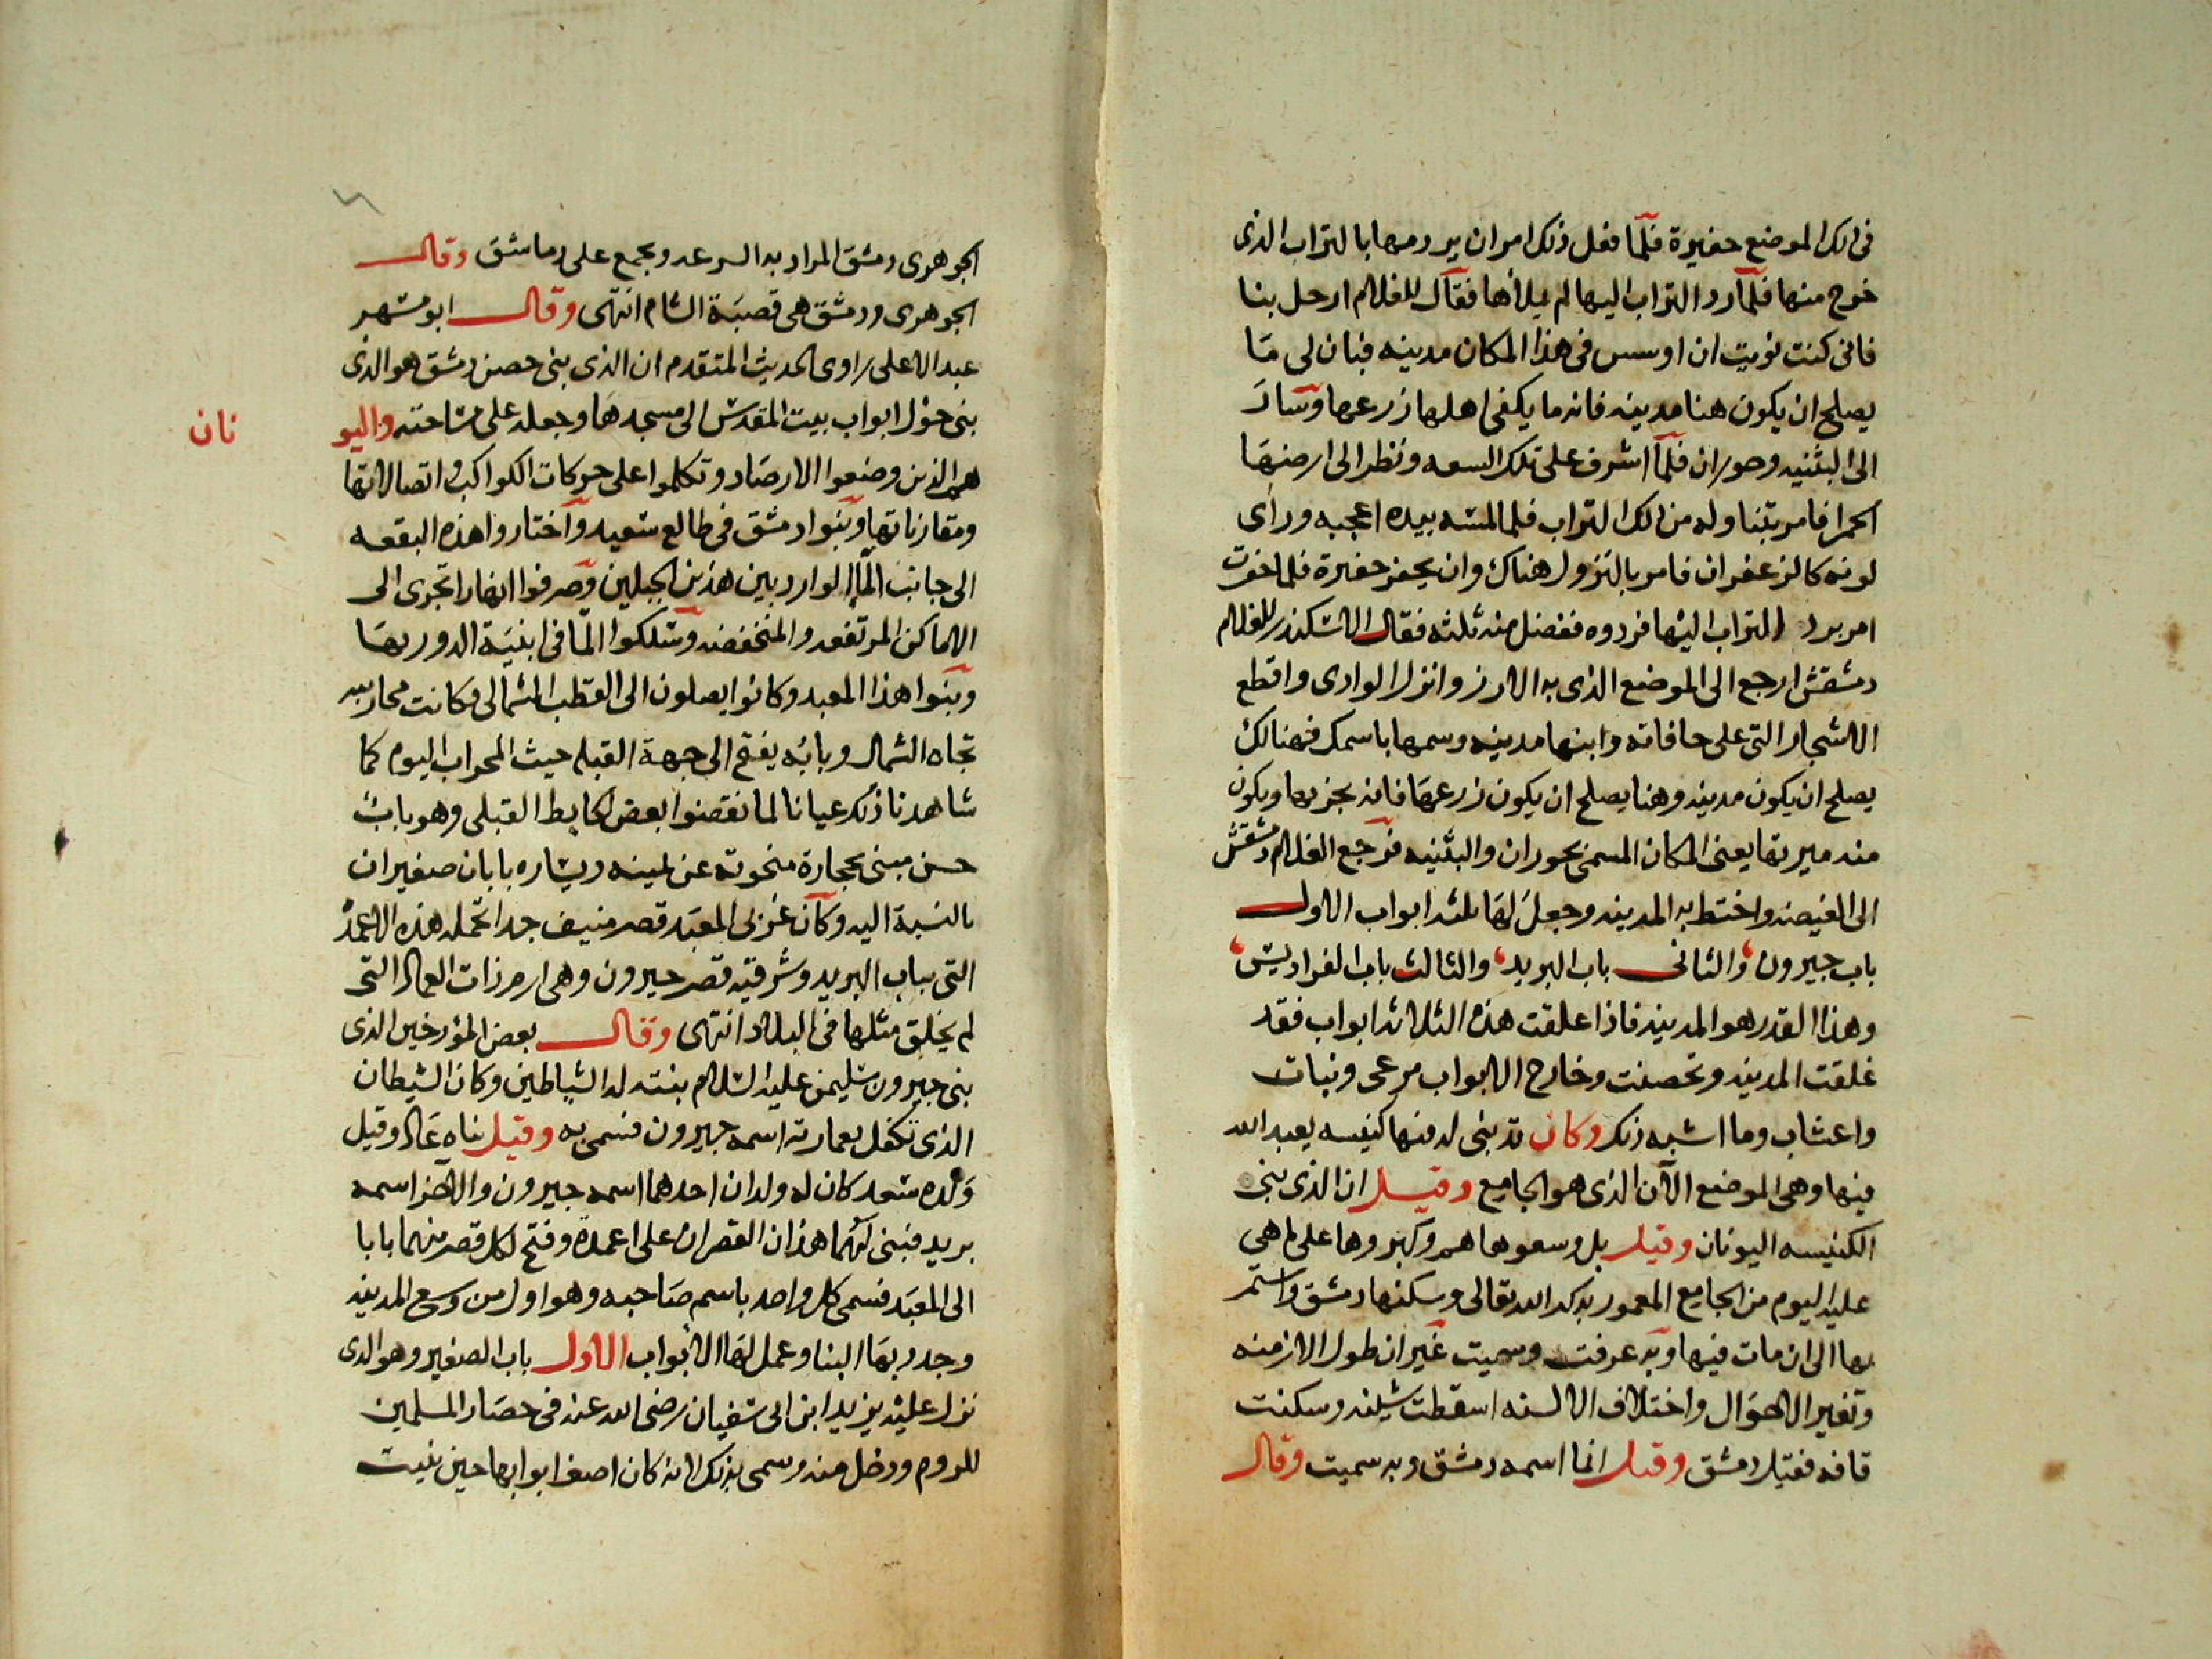 فى ذلك الموضع حفيرة فلما فعل ذلك امر ان يردمها بالتراب الذى
خرج منها فلما رد التراب اليها لم يملأها فقال للغلام ارحل بنا
فانى كنت نويت ان اوسس فى هذا المكان مدينه فبان لى ما
يصلح ان يكون هنا مدينه فانه ما يكفى اهلها زرعها وسار
الى البثنيه وحوران فلما اشرف على تلك السعه ونظر الى ارضها
الحمرا فامر بتناوله من ذلك التراب فلما لمسه بيده اعجبه وراى
لونه كالزعفران فامر بالنزول هناك وان يحفر حفيرة فلما حفرت
امر برد التراب اليها فردوه ففضل منه ثلثه فقال الاسكندر للغلام
دمشقش ارجع الى الموضع الذى به الارز وانزل الوادى واقطع
الاشجار التى على حافاته وابنها مدينه وسمها باسمك فهنالك
يصلح ان يكون مدينه وهنا يصلح ان يكون زرعها فانه يجزيها ويكون
منه ميرتها يعنى المكان المسمى بحوران والبثنيه فرجع الغلام دمشقش
الى الغيضه واختط به المدينه وجعل لها ثلثه ابواب الاول
باب جيرون والثانى باب البريد والثالث باب الفراديس
وهذا القدر هو المدينه فاذا غلقت هذه الثلاثه ابواب فقد
غلقت المدينه وتحصنت وخارج الابواب مرعى ونبات
واعشاب وما اشبه ذلك وكان قد بنى له فيها كنيسه يعبد الله
فيها وهى الموضع الآن الذى هو الجامع وقيل ان الذى بنى
الكنيسه اليونان وقيل بل وسعوها هم وكبروها على ما هى
عليه اليوم من الجامع المعمور بذكر الله تعالى وسكنها دمشق واستمر
بها الى ان مات فيها وبه عرفت وسميت غير ان طول الازمنه
وتغير الاحوال واختلاف الالسنه اسقطت شينه وسكنت
قافه فقيل دمشق وقيل انما اسمه دمشق وبه سميت وقال
الجوهرى دمشق المراد به السرعه ويجمع على دماشق وقال
الجوهرى ودمشق هى قصبة الشام انتهى وقال ابو مسهر
عبد الاعلى راوى الحديث المتقدم ان الذى بنى حصن دمشق هو الذى
بنى حول ابواب بيت المقدس الى مسجدها وجعله على مساحته واليو
نان
هم الذين وضعوا الارصاد وتكلموا على حركات الكواكب واتصالاتها
ومقارناتها وبنوا دمشق فى طالع سعيد واختاروا هذه البقعه
الى جانب المآ الوارد بين هذين الجبلين وصرفوا انهارا تجرى الى
الاماكن المرتفعه والمنخفضه وسلكوا المآ فى ابنية الدور بها
وبنوا هذا المعبد وكانوا يصلون الى القطب الشمالى وكانت محاريبه
تجاه الشمال وبابه يفتح الى جهة القبله حيث المحراب اليوم كما
شاهدنا ذلك عيانا لما نقضوا بعض الحايط القبلى وهو باب
حسن مبنى بحجارة منحوته عن يمينه ويساره بابان صغيران
بالنسبة اليه وكان غربى المعبد قصر منيف جدا تحمله هذه الاعمدة
التى بباب البريد وشرقيه قصر جيرون وهى ارم ذات العماد التى
لم يخلق مثلها فى البلاد انتهى وقال بعض المؤرخين الذى
بنى جيرون سليمن عليه السلام بنته له الشياطين وكان الشيطان
الذى تكفل بعمارته اسمه جيرون فسمى به وقيل بناه عاد وقيل
ولده سعد كان له ولدان احدهما اسمه جيرون والاخر اسمه
بريد فبنى لهما هذان القصران على اعمدة وفتح لكل قصر منهما بابا
الى المعبد فسمى كل واحد باسم صاحبه وهو اول من وسع المدينه
وجدد بها البنا وعمل لها الابواب الاول باب الصغير وهو الذى
نزل عليه يزيد ابن ابى سفيان رضى الله عنه فى حصار المسلمين
للروم ودخل منه وسمى بذلك لانه كان اصغر ابوابها حين بنيت